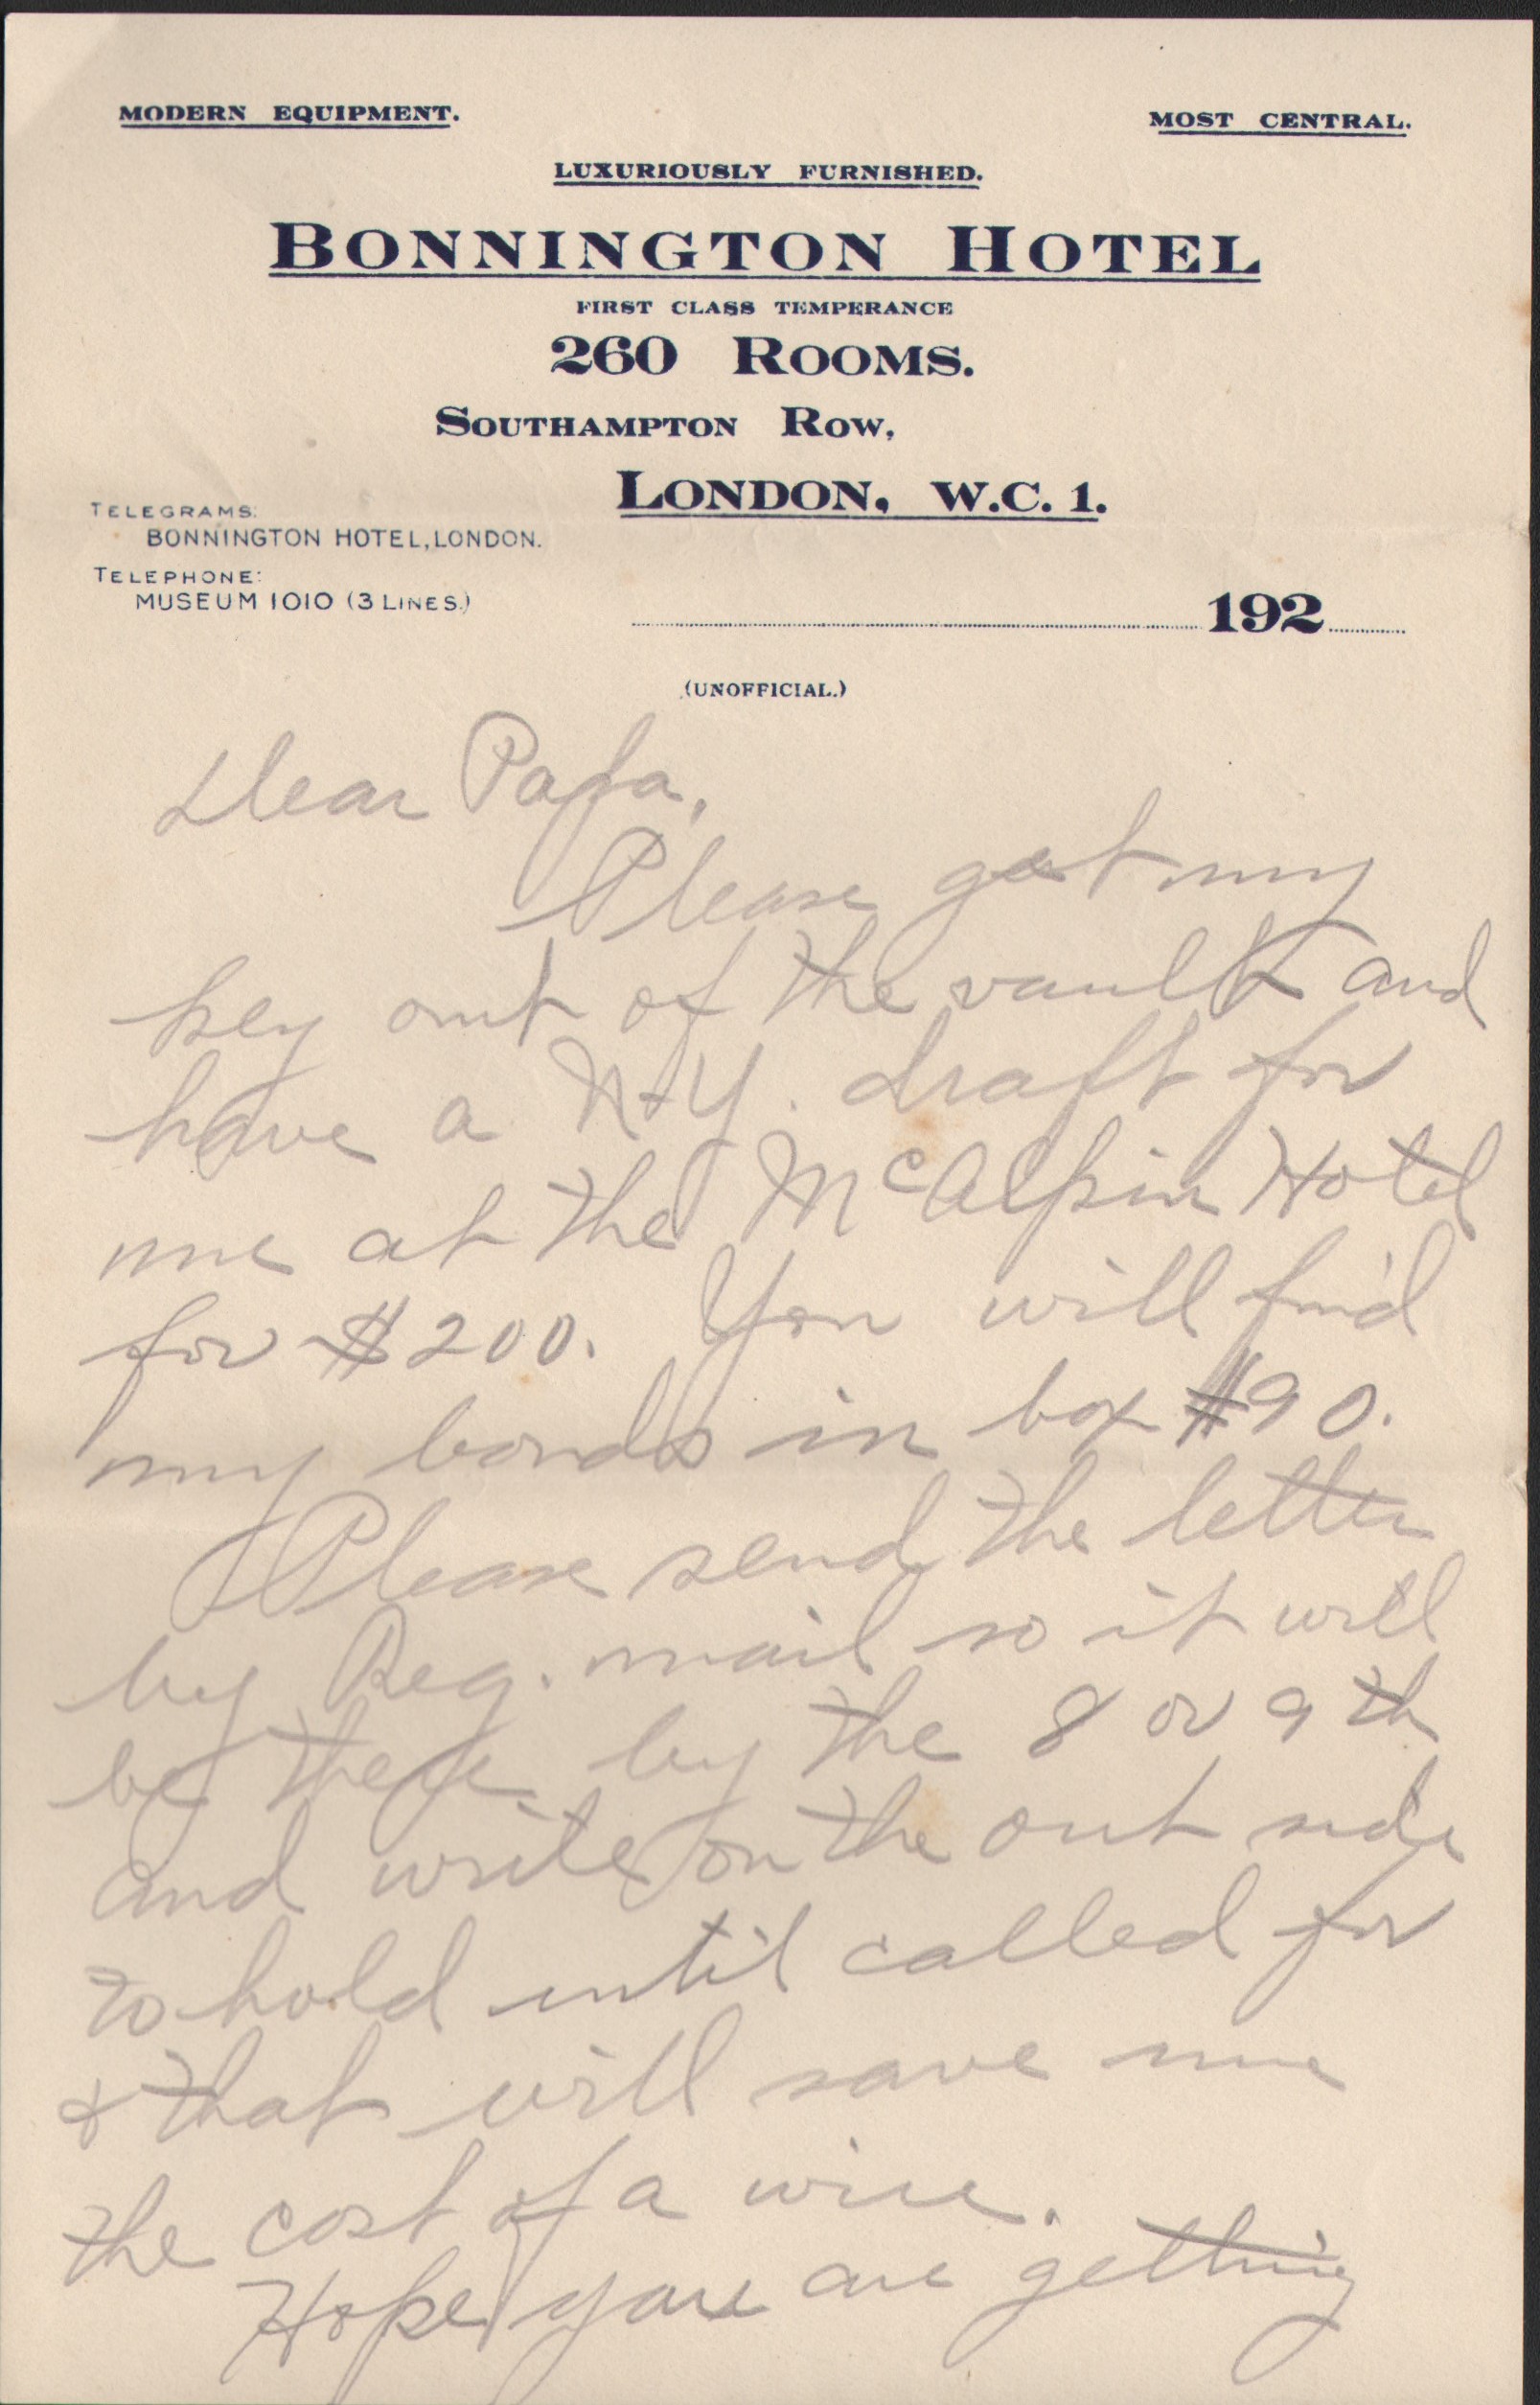 MODERN EQUIPMENT.
MOST CENTRAL.
LUXURIOUSLY FURNISHED.
BONNINGTON HOTEL
FIRST CLASS TEMPERANCE
260 ROOMS.
SOUTHAMPTON ROW,
LONDON, W.C. 1.
TELEGRAMS:
BONNINGTON HOTEL, LONDON.
TELEPHONE:
MUSEUM 1010 (3 LINES.)
192
(UNOFFICIAL.)
Dear Papa,
Please get my
key out of the vault and
have a N.Y. draft for
me at the McAlpin Hotel
for $200. You will find
my bonds in box #90.
Please send the letter
by Reg. mail so it will
be there by the 8 or 9th
and write on the out side
to hold until called for
& that will save me
the cost of a wire.
Hope you are getting